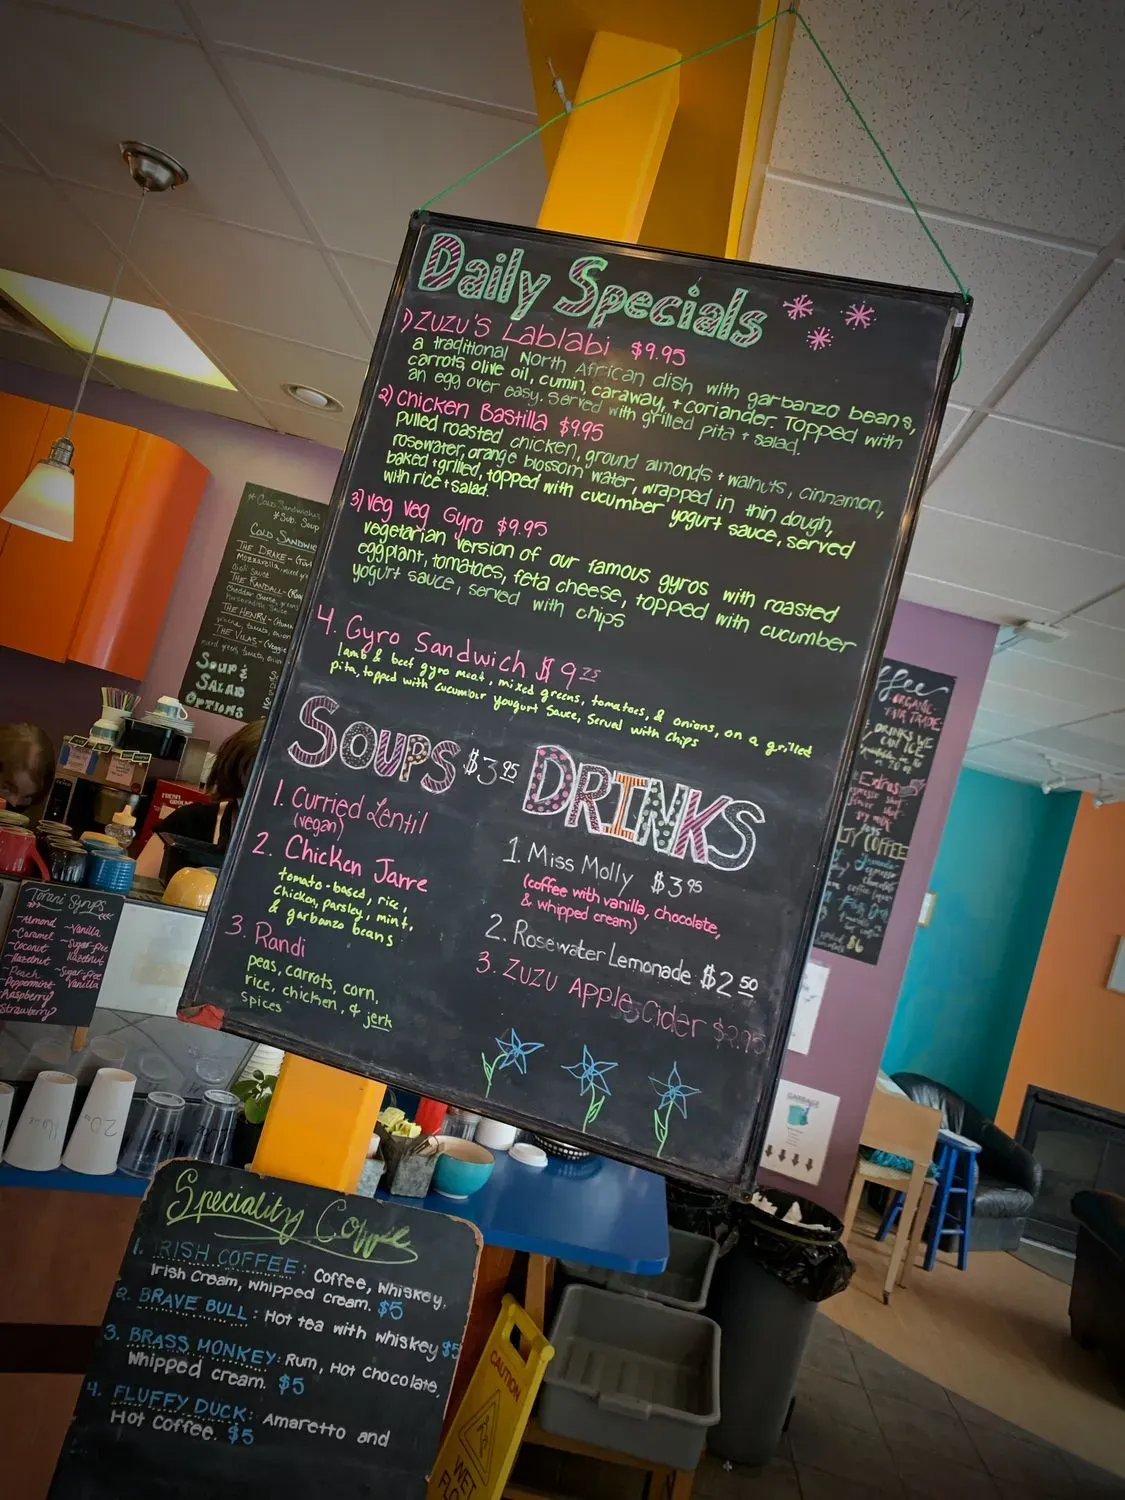 Daily Specials
1) Zuzu's Lablabi $9.95
a traditional North African dish with garbanzo beans,
carrots, olive oil, cumin, caraway, + coriander. Topped with
an egg over easy. Served with grilled pita + salad.
2) Chicken Bastilla $9.95
Pulled roasted chicken, ground almonds + walnuts, cinnamon,
rosewater, orange blossom water, wrapped in thin dough,
baked + grilled, topped with cucumber yogurt sauce, served
with rice + salad.
3) Veg Veg Gyro $9.95
vegetarian version of our famous gyros with roasted
eggplant, tomatoes, feta cheese, topped with cucumber
yogurt sauce, served with chips
4. Gyro Sandwich $9
lamb & beef gyro meat, mixed greens, tomatoes, & onions, on a grilled
pita, topped with cucumber yougurt sauce, served with chips
SOUPS $3.95
1. Curried Lentil
(vegan)
2. Chicken Jarre
tomato-based, rice,
chicken, parsley, mint,
& garbonzo beans
3. Randi
peas, carrots, corn,
rice, chicken, & jerk
spices
DRINKS
1. Miss Molly $3.95
(coffee with vanilla, chocolate,
& whipped cream)
2. Rosewater Lemonade $2.50
3. Zuzu Apple Cider $2.95
Speciality Coffee
1. IRISH COFFEE: Coffee, Whiskey,
Irish Cream, whipped cream. $5
2. BRAVE BULL: Hot tea with whiskey $5
3. BRASS MONKEY: Rum, Hot chocolate,
Whipped cream. $5
4. FLUFFY DUCK: Amaretto and
Hot Coffee. $5
Torani Syrups
~Almond
~Caramel
~Coconut
~Hazelnut
~Peach
Peppermint
Raspberry
Strawberry
~Vanilla
~Sugar-free
Hazelnut
~Sugar-free
Vanilla
*Cold Sandwiches
*Sub Soup
COLD SANDWIC
THE DRAKE-
Mozzarella,
Aioli Sauce
THE RANDALL-
cheddar cheese,
Horseradish Sauce
THE HENRY-
THE VILAS-(Veggie
SOUP &
SALAD
OPTIONS
ffee
ORGANIC
FAIR TRADE
DRINKS WE
CAN ICE
Extras
LTY COFFEE
$6
GARBAGE
20oz
CAUTION
WET
FLO